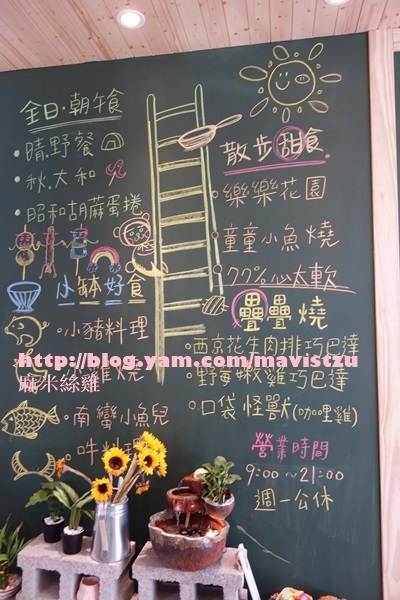 全日·朝午食
·晴.野餐
·秋.大和
·昭和胡蔴蛋捲
小缽好食
·小豬料理
雞燒
·南蠻小魚兒
·丼料理
散步甜食
樂樂花園
童童小魚燒
77%心太軟
疊疊燒
·西京花生肉排巧巴達
·野莓嫩雞巧巴達
·口袋怪獸(咖哩雞)
營業時間
9:00~21:00
週一公休
http://blog.yam.com/mavistzu
麻米絲雞